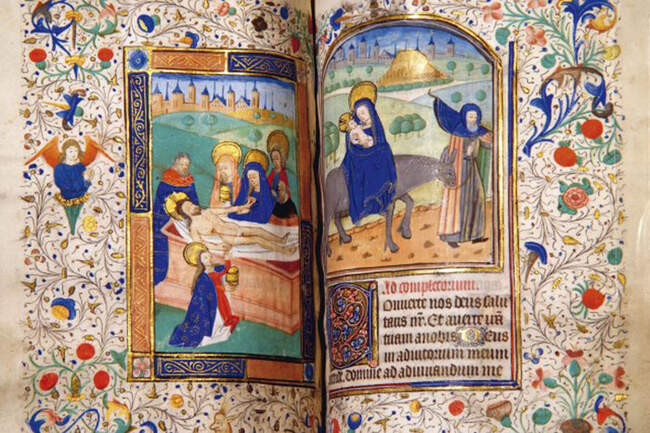 Ad completorium.
Conuerte nos deus salu
taris nr̄. Et auerte irā
tuam anobis Deus
in adiutorium meum
domine ad adiuuandum me